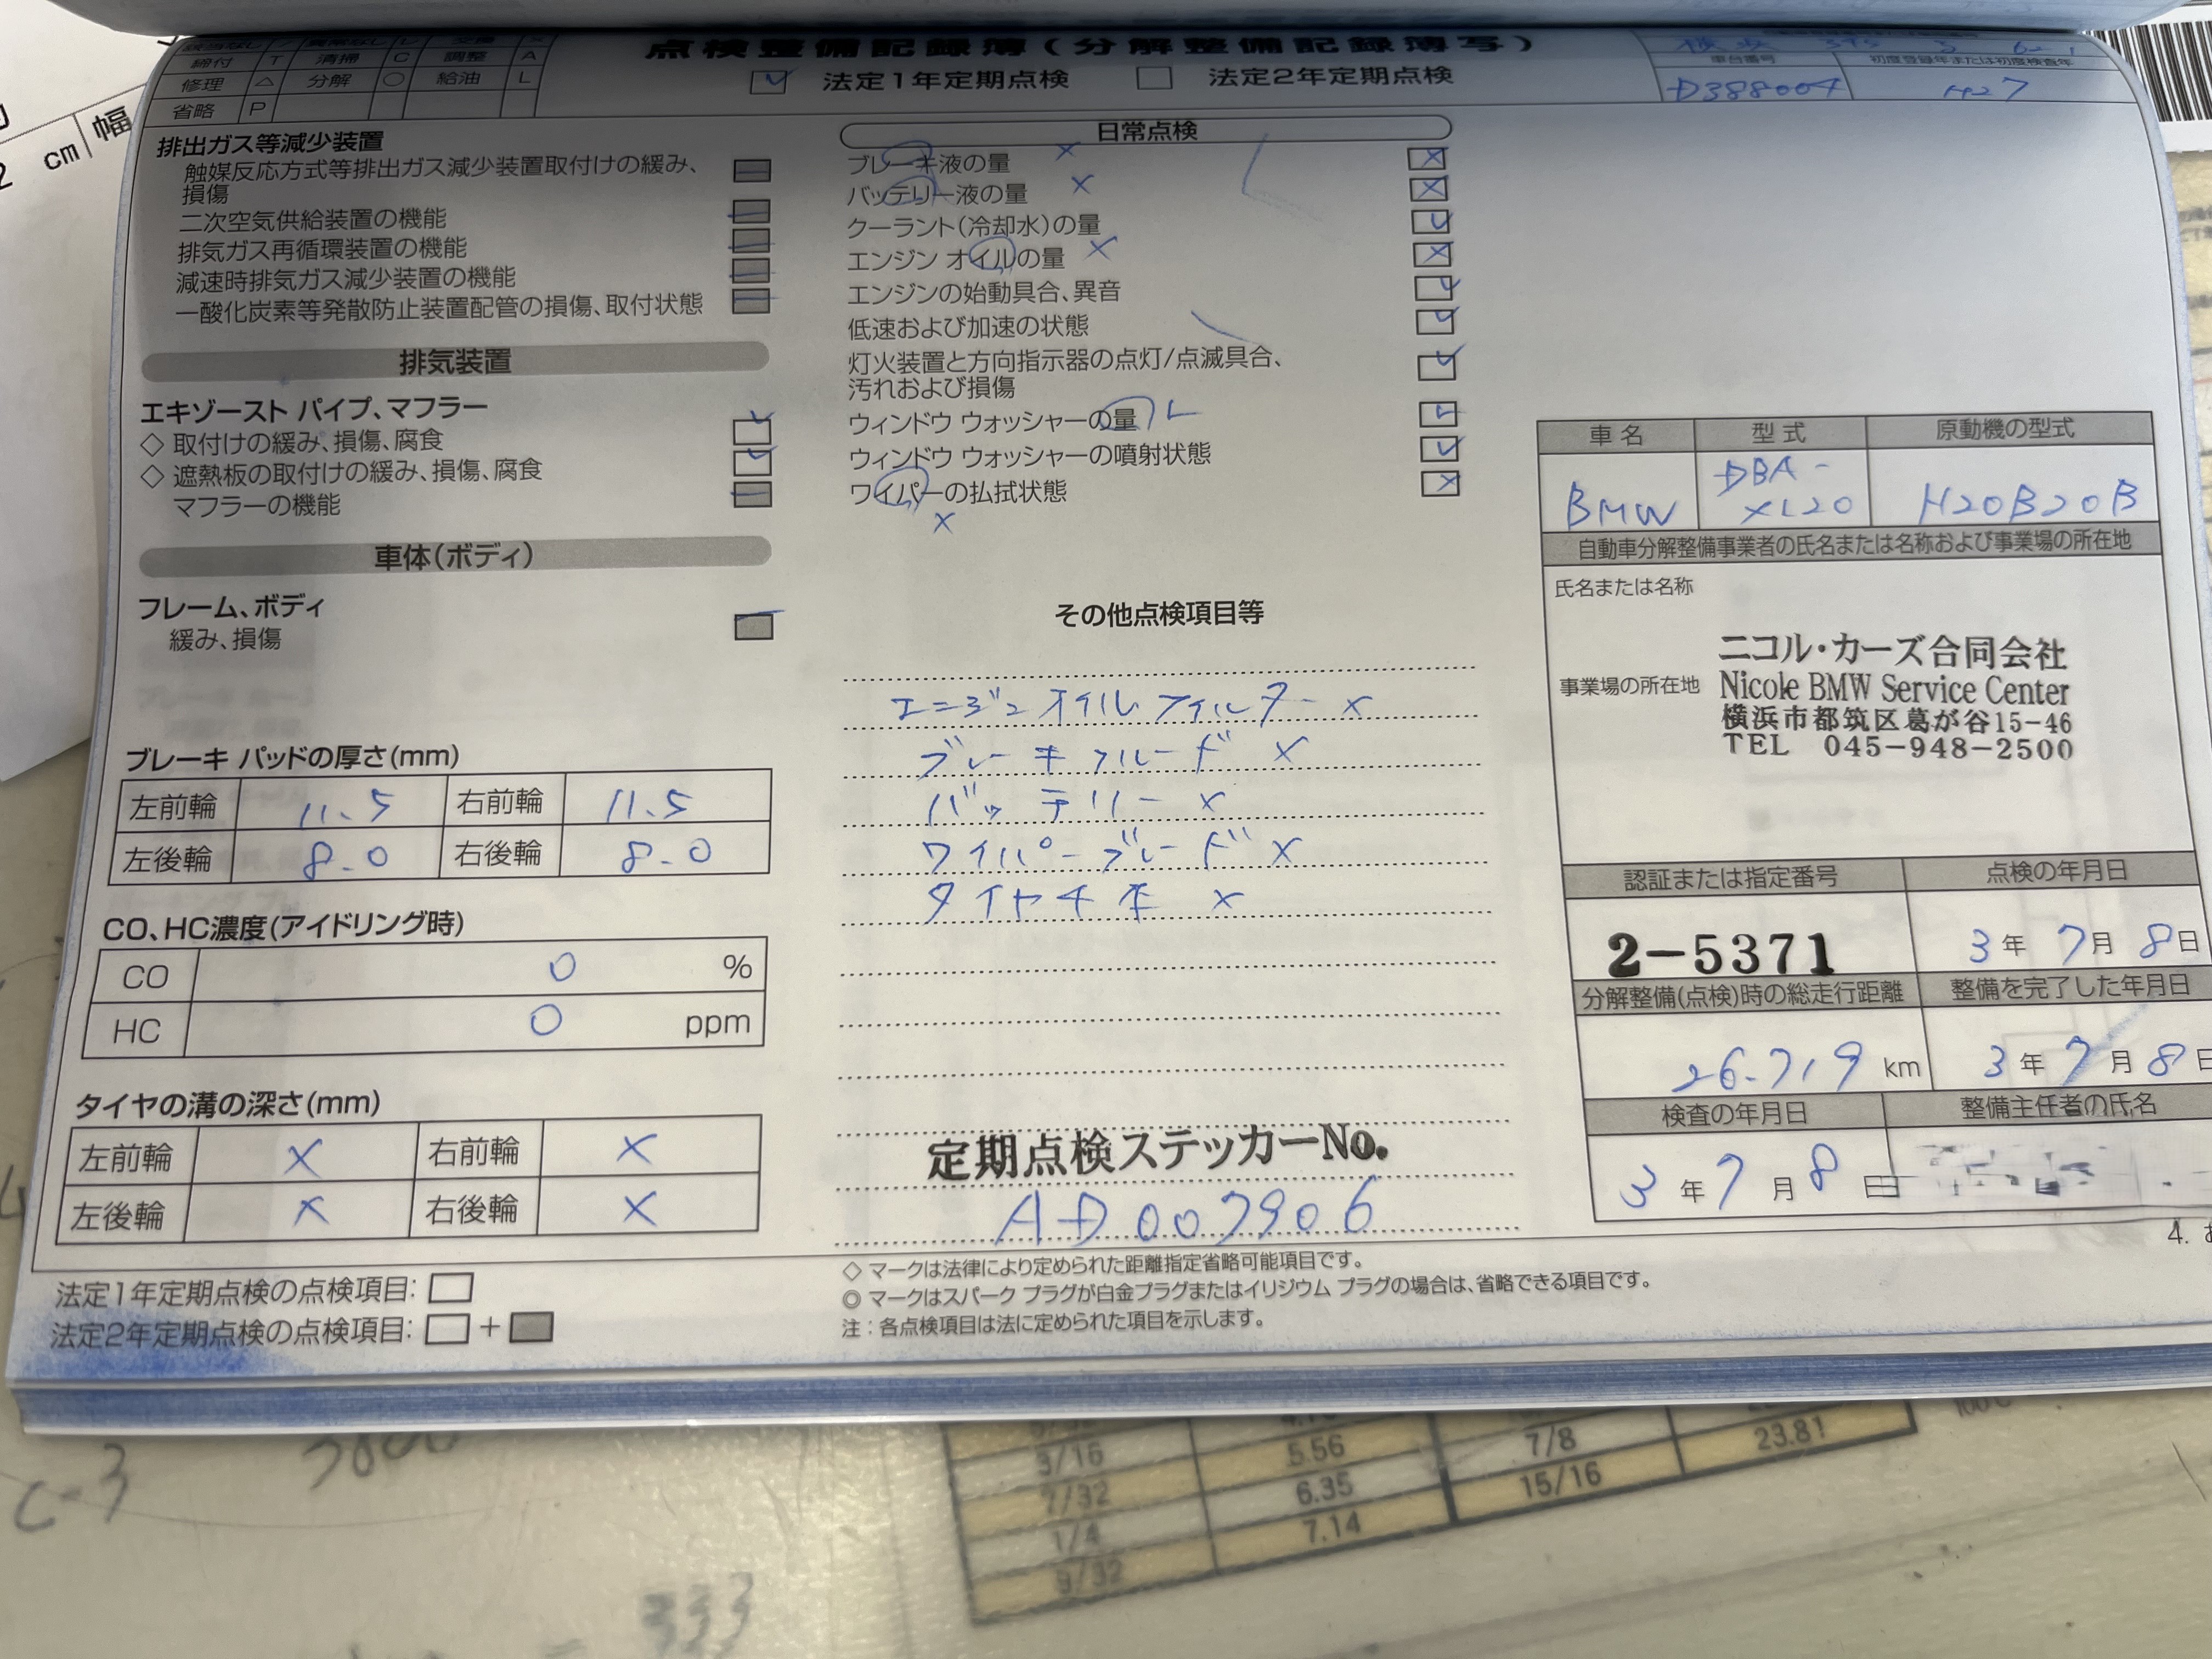 点検整備記録簿(分解整備記録簿写)
締付 T 清掃 C 調整 A
修理 △ 分解 ○ 給油 L
省略 P
法定1年定期点検 法定2年定期点検
車台番号 初度登録年または初度検査年
D388004 H27
排出ガス等減少装置
触媒反応方式等排出ガス減少装置取付けの緩み、
損傷
二次空気供給装置の機能
排気ガス再循環装置の機能
減速時排気ガス減少装置の機能
一酸化炭素等発散防止装置配管の損傷、取付状態
排気装置
エキゾースト パイプ、マフラー
◇ 取付けの緩み、損傷、腐食
◇ 遮熱板の取付けの緩み、損傷、腐食
マフラーの機能
車体(ボディ)
フレーム、ボディ
緩み、損傷
ブレーキ パッドの厚さ(mm)
左前輪 11.5 右前輪 11.5
左後輪 8.0 右後輪 8.0
CO、HC濃度(アイドリング時)
CO 0 %
HC 0 ppm
タイヤの溝の深さ(mm)
左前輪 × 右前輪 ×
左後輪 × 右後輪 ×
法定1年定期点検の点検項目:
法定2年定期点検の点検項目: +
日常点検
ブレーキ液の量 ×
バッテリー液の量 ×
クーラント(冷却水)の量
エンジン オイルの量 ×
エンジンの始動具合、異音
低速および加速の状態
灯火装置と方向指示器の点灯/点滅具合、
汚れおよび損傷
ウィンドウ ウォッシャーの量 L
ウィンドウ ウォッシャーの噴射状態
ワイパーの払拭状態
×
その他点検項目等
エンジン オイルフィルター ×
ブレーキフルード ×
バッテリー ×
ワイパーブレード ×
タイヤ4本 ×
定期点検ステッカーNo.
AD007906
◇ マークは法律により定められた距離指定省略可能項目です。
◎ マークはスパーク プラグが白金プラグまたはイリジウム プラグの場合は、省略できる項目です。
注:各点検項目は法に定められた項目を示します。
車名 型式 原動機の型式
BMW DBA-XL20 H20B20B
自動車分解整備事業者の氏名または名称および事業場の所在地
氏名または名称
ニコル・カーズ合同会社
事業場の所在地 Nicole BMW Service Center
横浜市都筑区葛が谷15-46
TEL 045-948-2500
認証または指定番号 点検の年月日
2-5371 3年 7月 8日
分解整備(点検)時の総走行距離 整備を完了した年月日
26.719 km 3年 7月 8日
検査の年月日 整備主任者の氏名
3年 7月 8日
4.
3/16 5.56 7/8 23.81
7/32 6.35 15/16
1/4 7.14
9/32
333
cm 幅